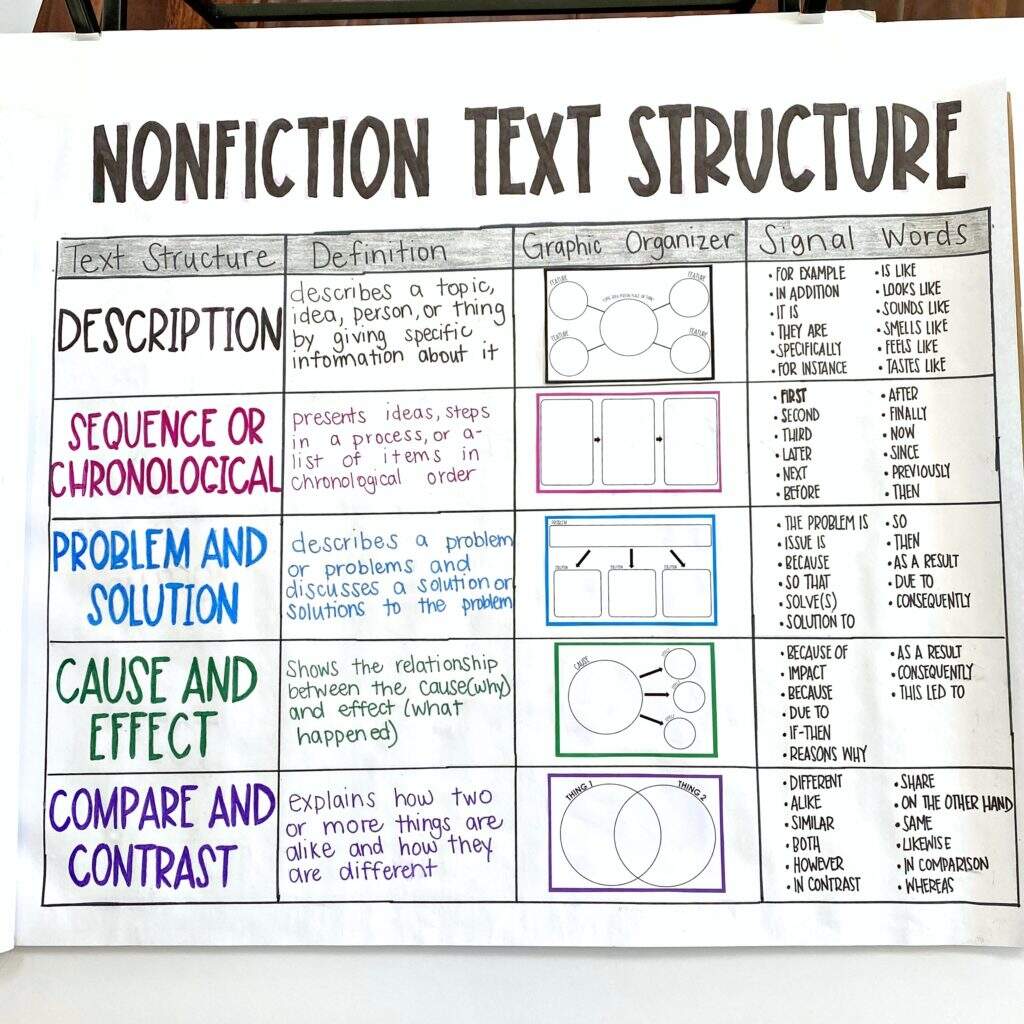 NONFICTION TEXT STRUCTURE
Text Structure
Definition
Graphic Organizer
Signal Words
DESCRIPTION
describes a topic,
idea, person, or thing
by giving specific
information about it
FEATURE
FEATURE
FEATURE
FEATURE
• FOR EXAMPLE
• IN ADDITION
• IT IS
• THEY ARE
• SPECIFICALLY
• FOR INSTANCE
• IS LIKE
• LOOKS LIKE
• SOUNDS LIKE
• SMELLS LIKE
• FEELS LIKE
• TASTES LIKE
SEQUENCE OR
CHRONOLOGICAL
presents ideas, steps
in a process, or a
list of items in
chronological order
• FIRST
• SECOND
• THIRD
• LATER
• NEXT
• BEFORE
• AFTER
• FINALLY
• NOW
• SINCE
• PREVIOUSLY
• THEN
PROBLEM AND
SOLUTION
describes a problem
or problems and
discusses a solution or
solutions to the problem
PROBLEM
SOLUTION
SOLUTION
SOLUTION
• THE PROBLEM IS
• ISSUE IS
• BECAUSE
• SO THAT
• SOLVE(S)
• SOLUTION TO
• SO
• THEN
• AS A RESULT
• DUE TO
• CONSEQUENTLY
CAUSE AND
EFFECT
Shows the relationship
between the cause(why)
and effect (what
happened)
CAUSE
• BECAUSE OF
• IMPACT
• BECAUSE
• DUE TO
• IF-THEN
• REASONS WHY
• AS A RESULT
• CONSEQUENTLY
• THIS LED TO
COMPARE AND
CONTRAST
explains how two
or more things are
alike and how they
are different
THING 1
THING 2
• DIFFERENT
• ALIKE
• SIMILAR
• BOTH
• HOWEVER
• IN CONTRAST
• SHARE
• ON THE OTHER HAND
• SAME
• LIKEWISE
• IN COMPARISON
• WHEREAS